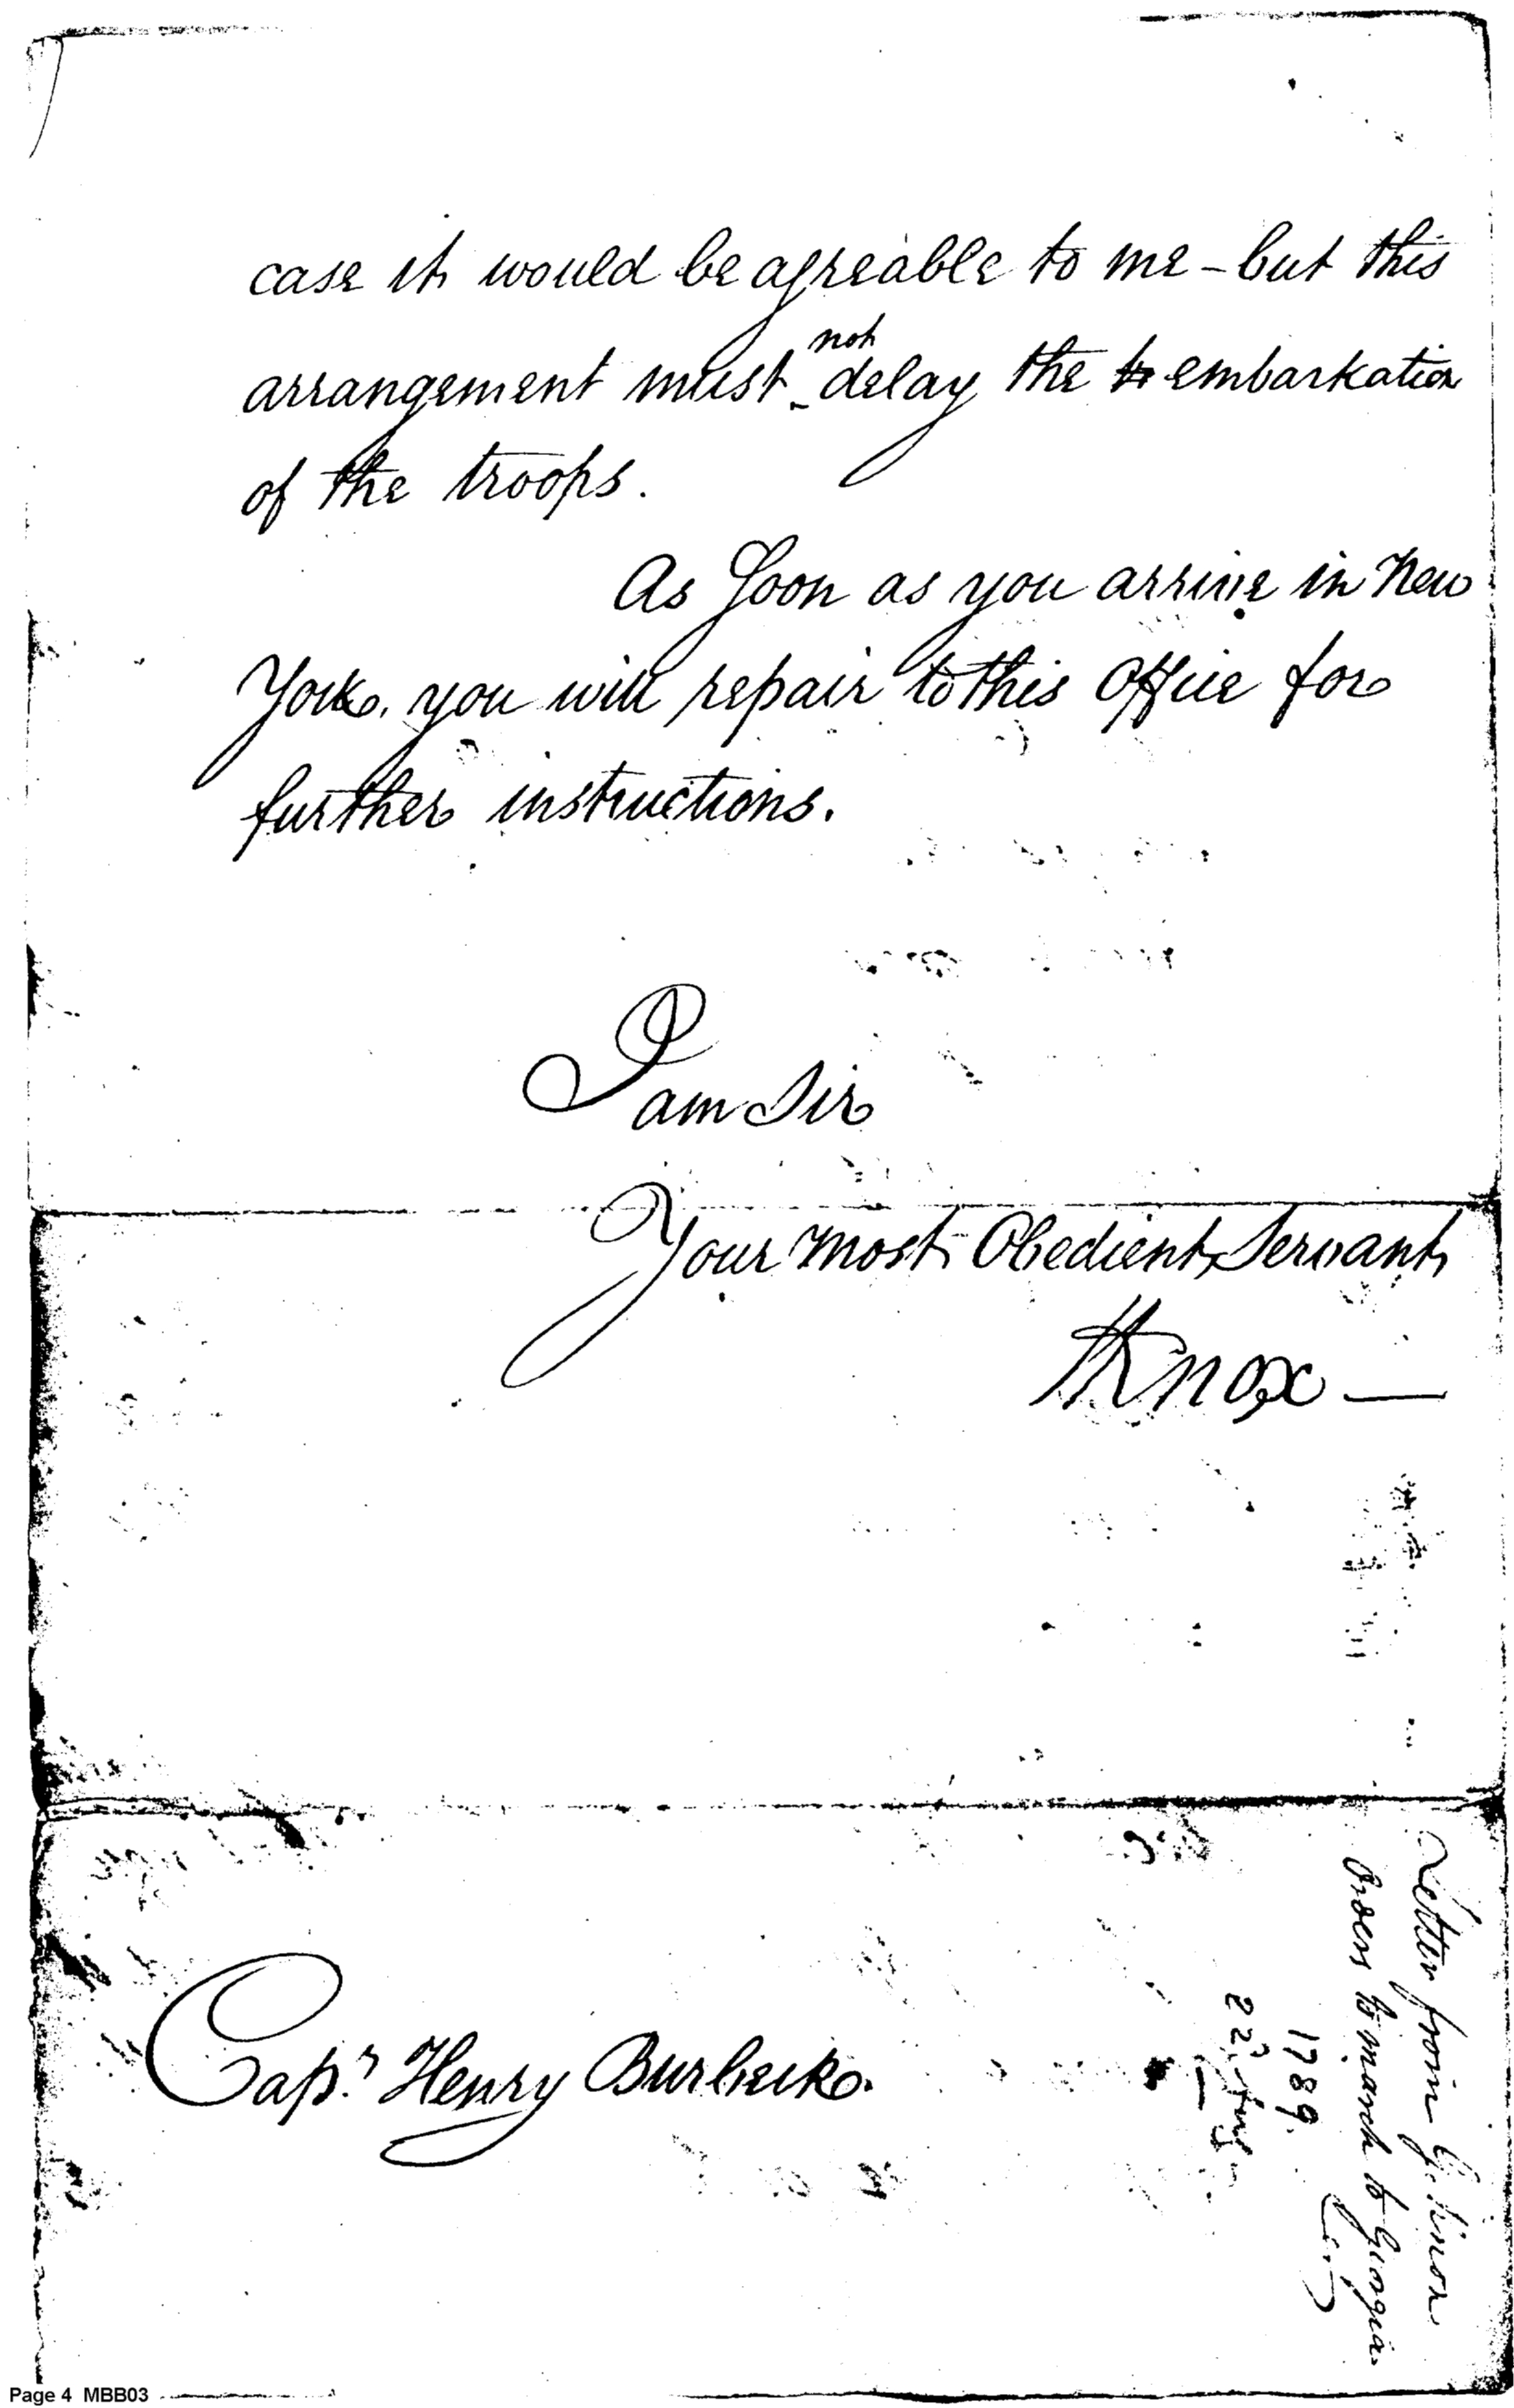 case it would be agreable to me - but this
arrangement must not delay the to embarkation
of the troops.
As Soon as you arrive in New
York, you will repair to this Office for
further instructions.
I am Sir
Your most Obedient Servant
HKnox —
Capt. Henry Burbeck.
Letter from G. Knox
Orders to march to Georgia.
1789.
22d
Page 4 MBB03